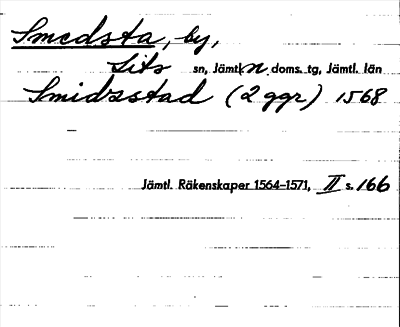 Smedsta, by,
Lits sn, Jämtl. n doms. tg, Jämtl. län
Smidzstad (2 ggr) 1568
Jämtl. Räkenskaper 1564–1571, II s. 166